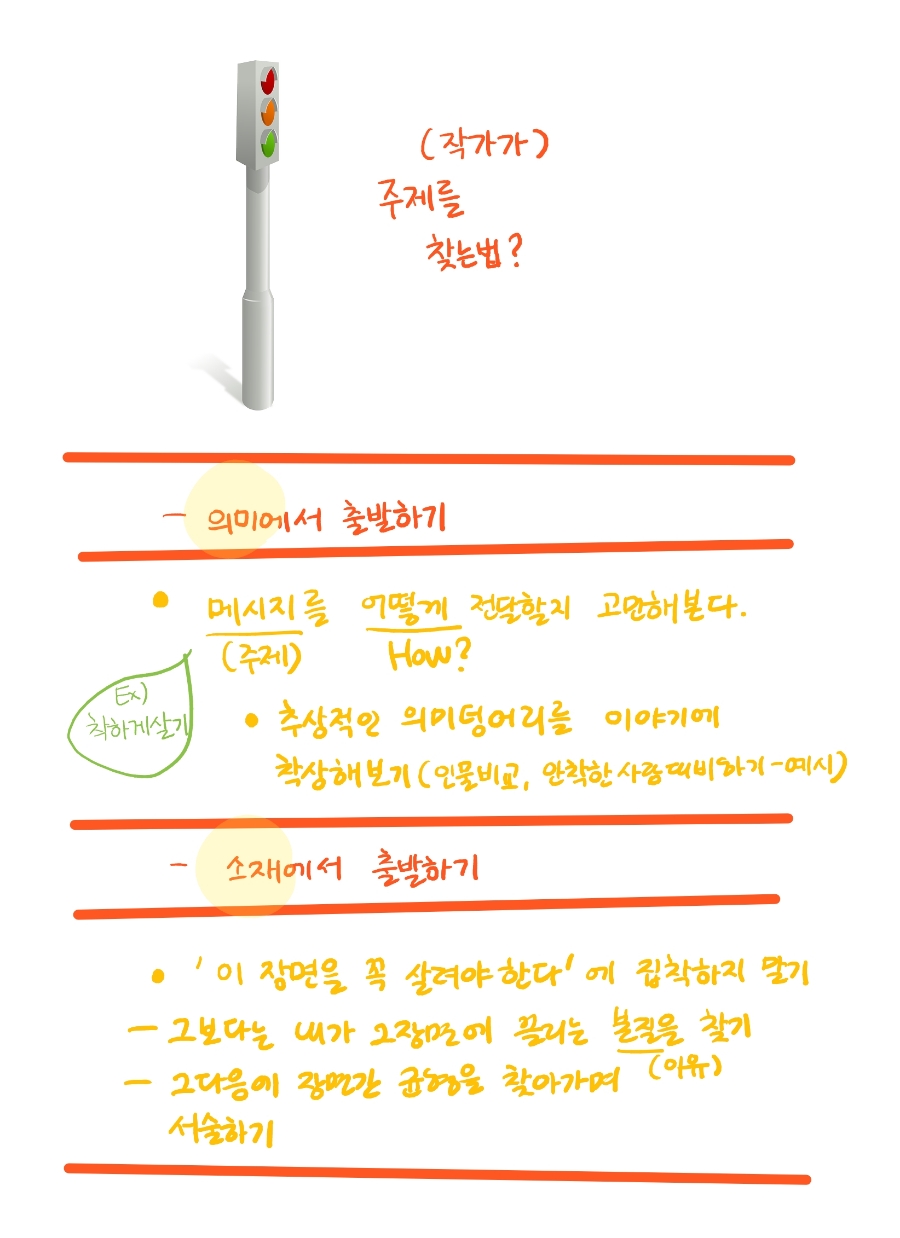 (작가가)
주제를
찾는법?
- 의미에서 출발하기
• 메시지를 어떻게 전달할지 고민해본다.
(주제) How?
Ex)
착하게살기
• 추상적인 의미덩어리를 이야기에
착상해보기 (인물비교, 안착한사람대비하기-예시)
- 소재에서 출발하기
• '이 장면을 꼭 살려야한다'에 집착하지 말기
- 그보다는 내가 그장면에 끌리는 본질을 찾기
(이유)
- 그다음에 장면간 균형을 찾아가며
서술하기